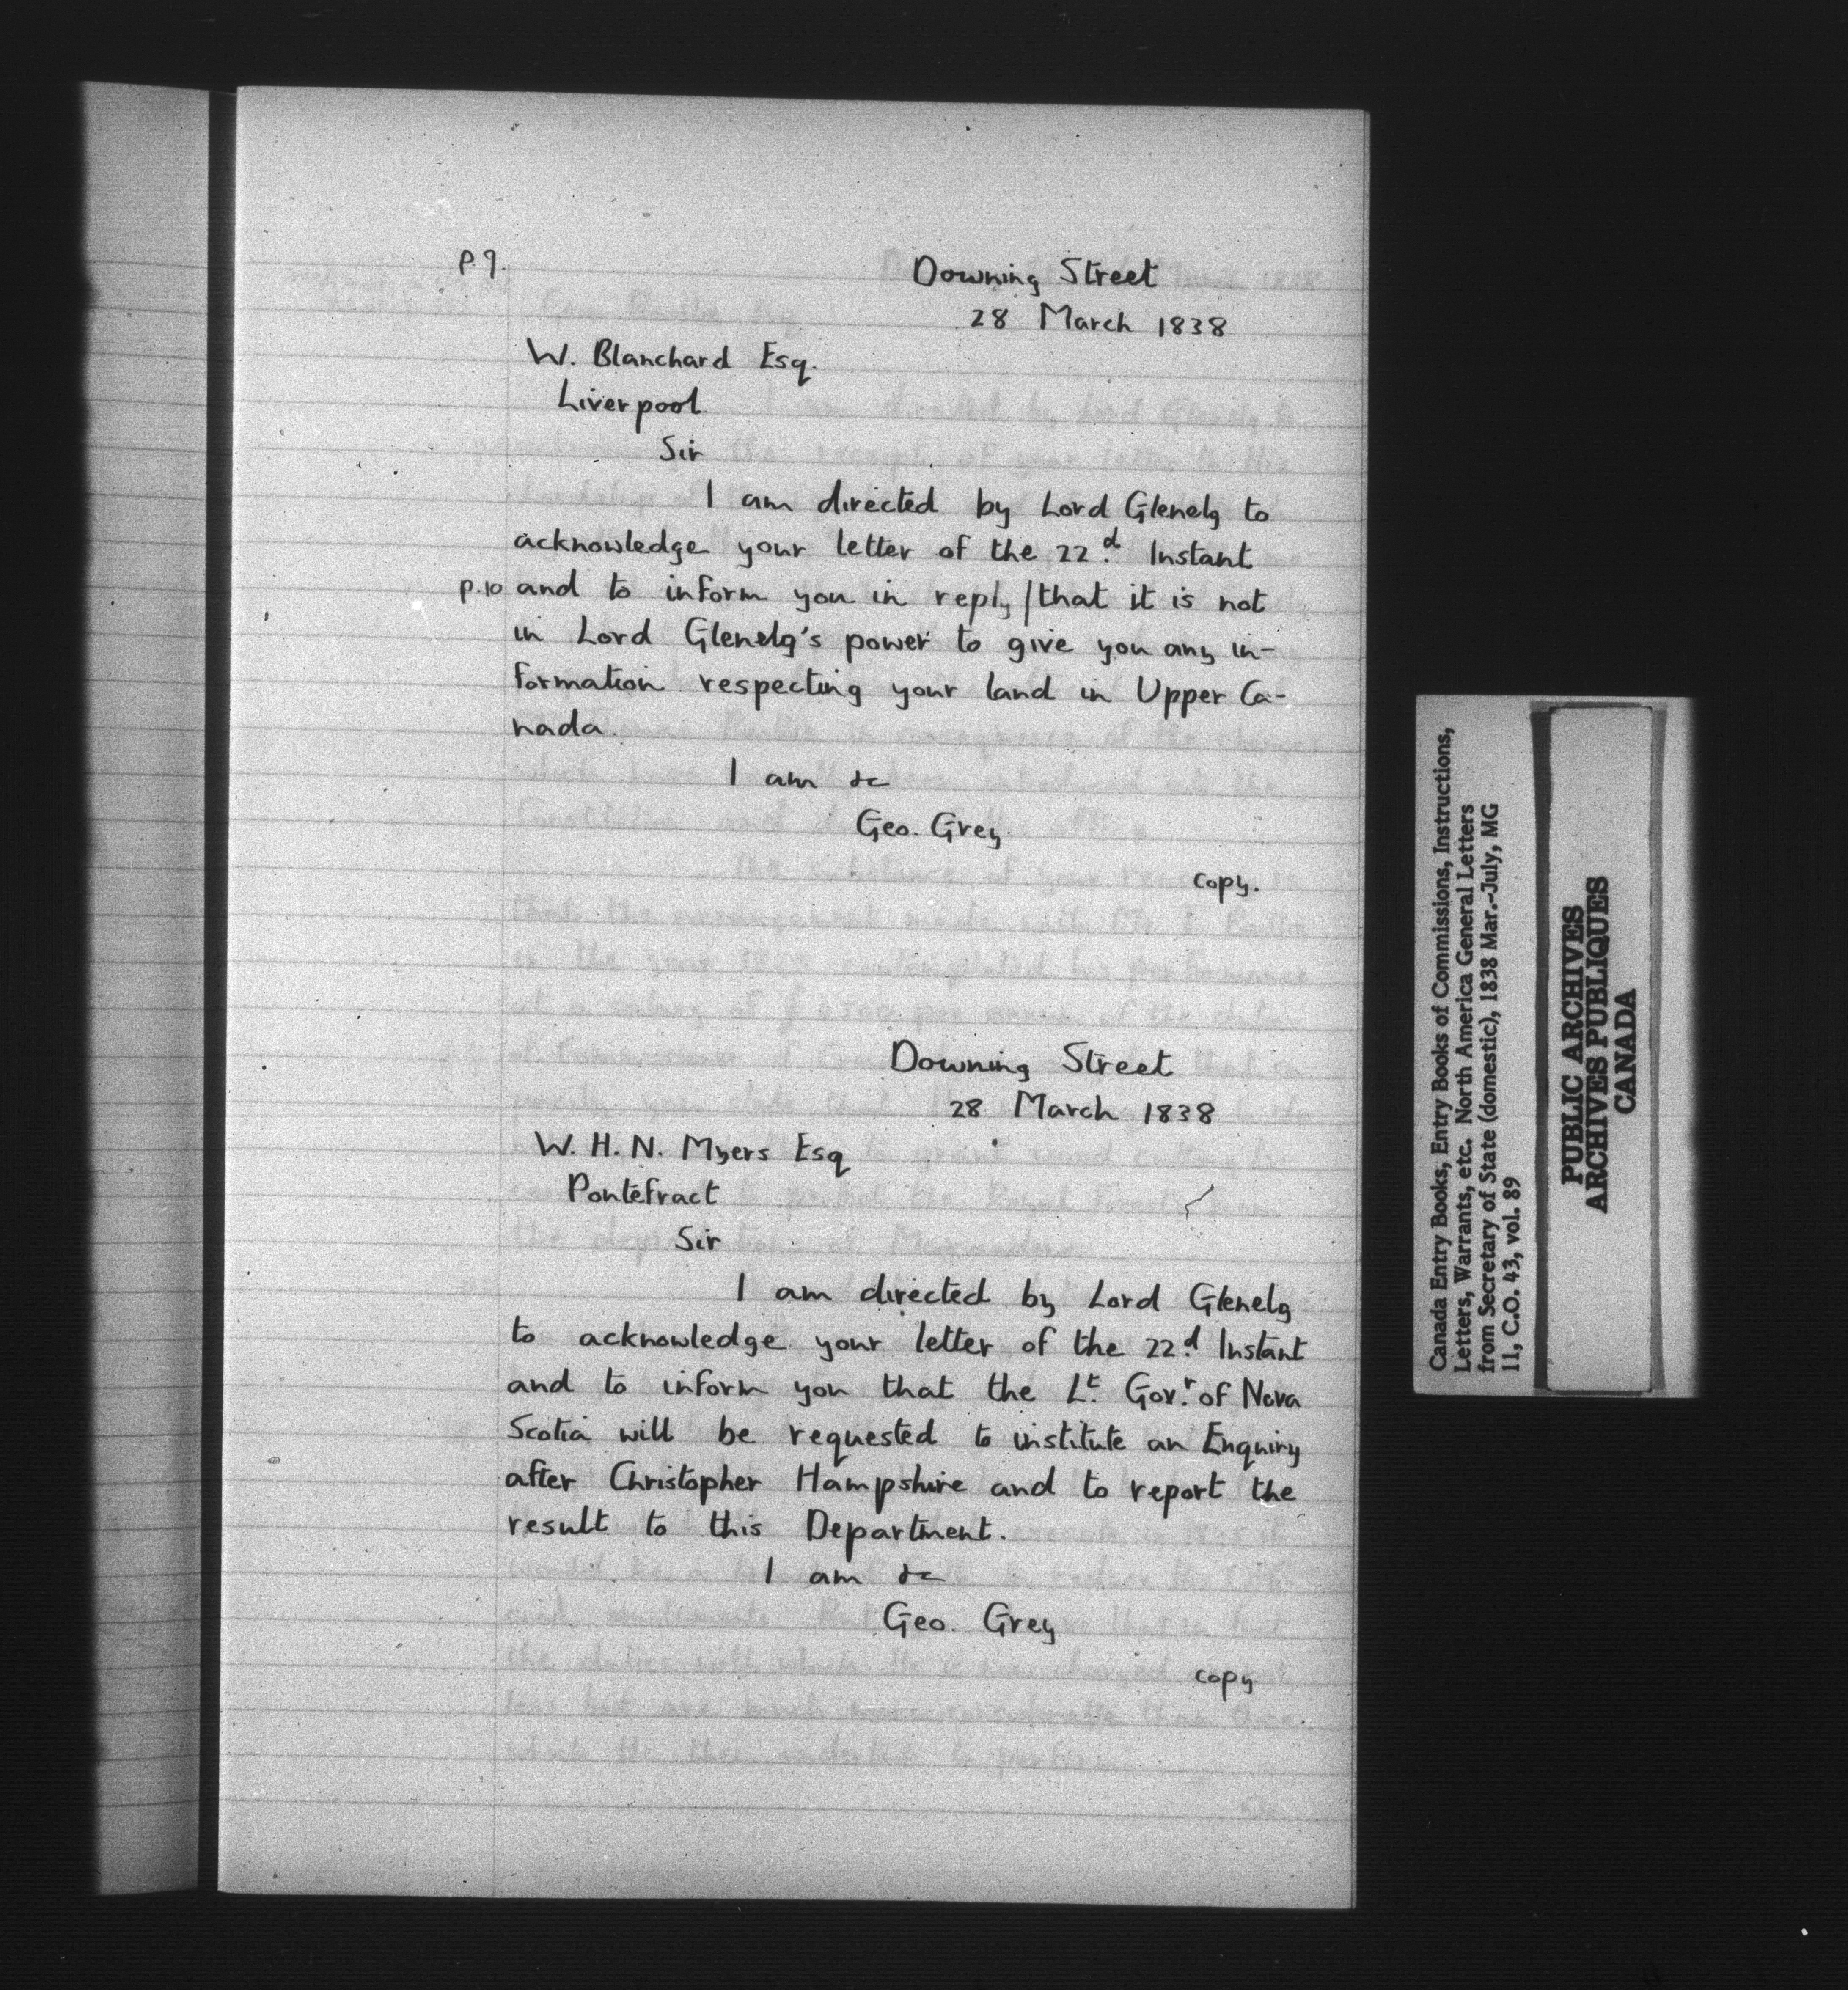 p.9.
Downing Street
28 March 1838
W. Blanchard Esq.
Liverpool
Sir
I am directed by Lord Glenelg to
acknowledge your letter of the 22d. Instant
p.10 and to inform you in reply / that it is not
in Lord Glenelg's power to give you any in-
formation respecting your land in Upper Ca-
nada.
I am &c
Geo. Grey
copy.
Downing Street
28 March 1838
W. H. N. Myers Esq
Pontefract
Sir
I am directed by Lord Glenelg
to acknowledge your letter of the 22d. Instant
and to inform you that the Lt. Govr. of Nova
Scotia will be requested to institute an Enquiry
after Christopher Hampshire and to report the
result to this Department.
I am &c
Geo. Grey
copy
Canada Entry Books, Entry Books of Commissions, Instructions,
Letters, Warrants, etc. North America General Letters
from Secretary of State (domestic), 1838 Mar.-July, MG
11, C.O. 43, vol. 89
PUBLIC ARCHIVES
ARCHIVES PUBLIQUES
CANADA